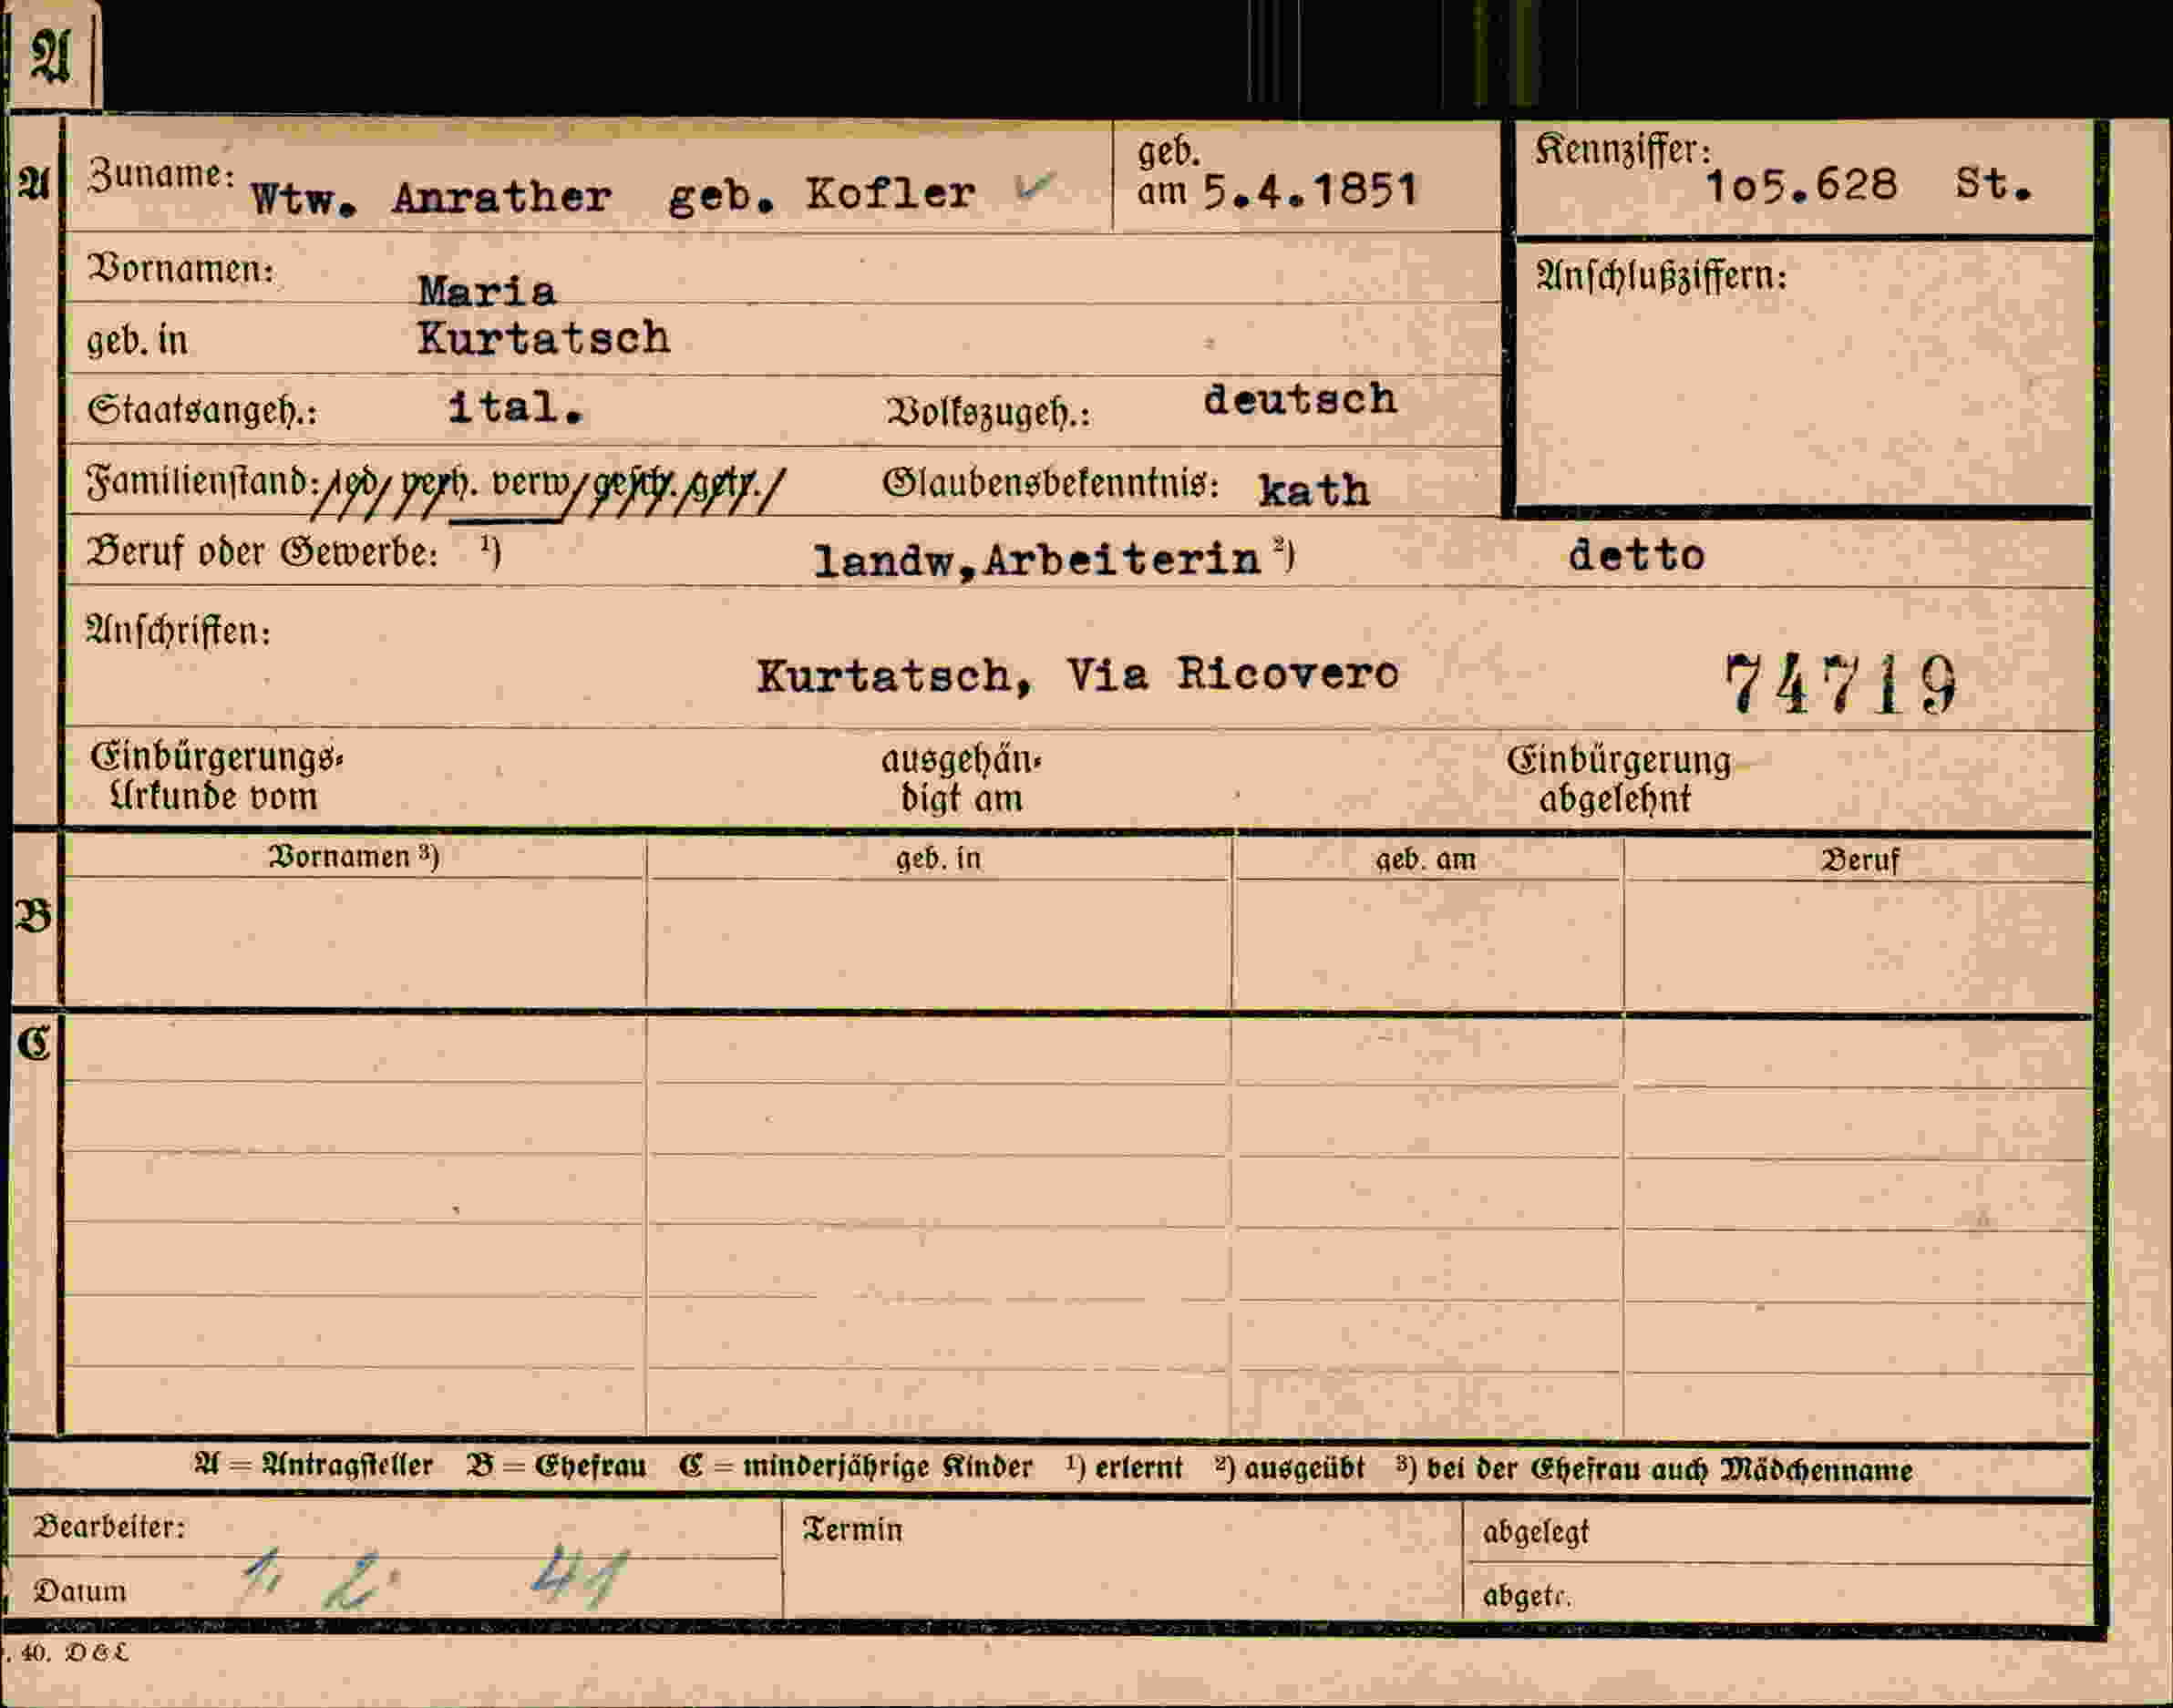 A
A
Zuname: Wtw. Anrather geb. Kofler ✓ geb. am 5.4.1851 Kennziffer: 1o5.628 St.
Vornamen: Maria Anschlußziffern:
geb. in Kurtatsch
Staatsangeh.: ital. Volkszugeh.: deutsch
Familienstand: led/ verh. verw/ gesch. getr./ Glaubensbekenntnis: kath
Beruf oder Gewerbe: ¹) landw,Arbeiterin ²) detto
Anschriften:
Kurtatsch, Via Ricovero 74719
Einbürgerungs- ausgehän- Einbürgerung
Urkunde vom digt am abgelehnt
Vornamen ³) geb. in geb. am Beruf
B
C
A = Antragsteller B = Ehefrau C = minderjährige Kinder ¹) erlernt ²) ausgeübt ³) bei der Ehefrau auch Mädchenname
Bearbeiter: Termin abgelegt
Datum 1. 2. 41 abgetr.
. 40. D & L